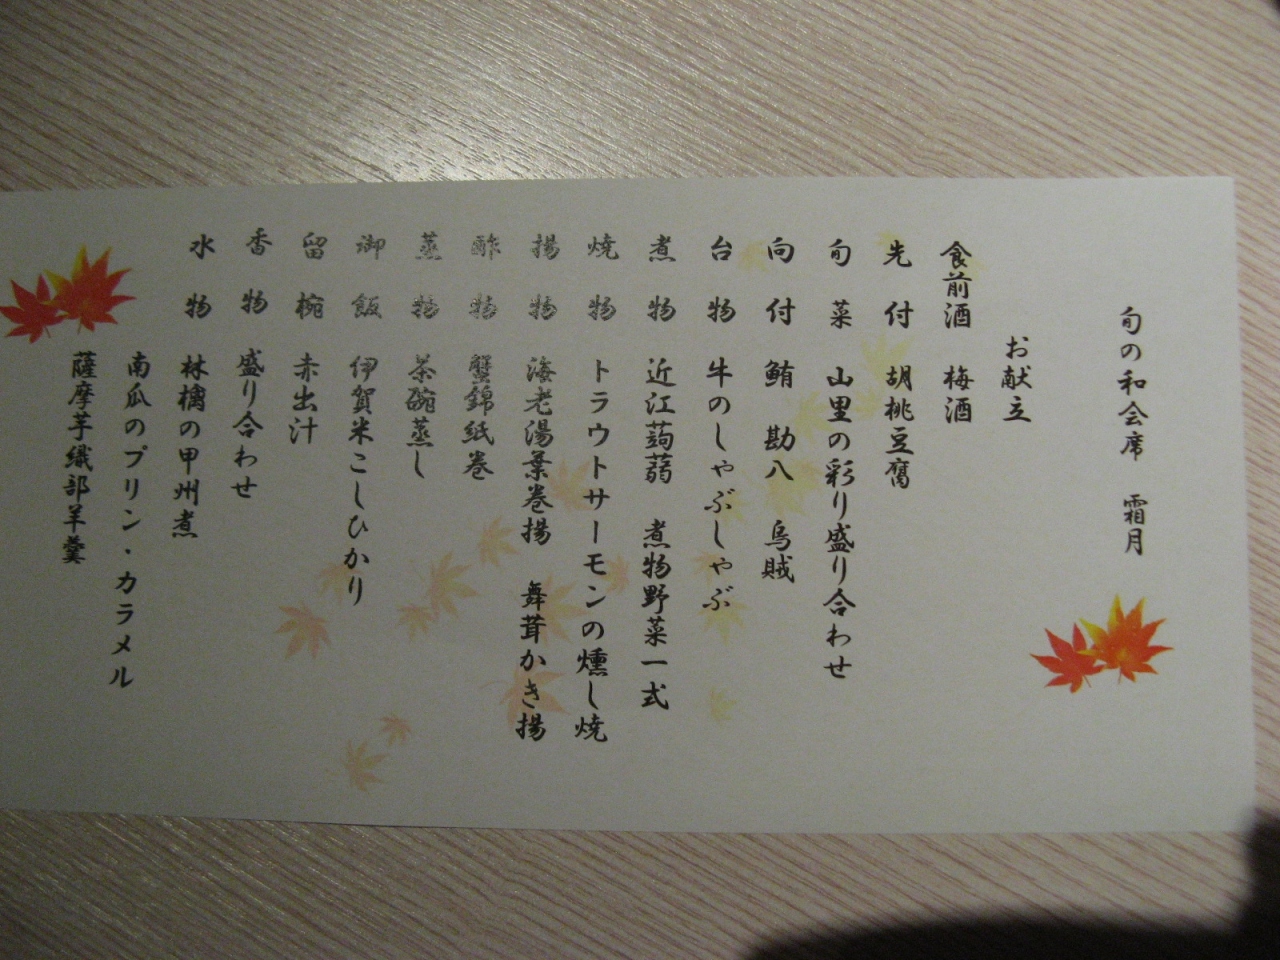 旬の和会席　霜月
お献立
食前酒　梅酒
先付　胡桃豆腐
旬菜　山里の彩り盛り合わせ
向付　鮪　勘八　烏賊
台物　牛のしゃぶしゃぶ
煮物　近江蒟蒻　煮物野菜一式
焼物　トラウトサーモンの燻し焼
揚物　海老湯葉巻揚　舞茸かき揚
酢物　蟹錦紙巻
蒸物　茶碗蒸し
御飯　伊賀米こしひかり
留椀　赤出汁
香物　盛り合わせ
水物　林檎の甲州煮
南瓜のプリン・カラメル
薩摩芋織部羊羹